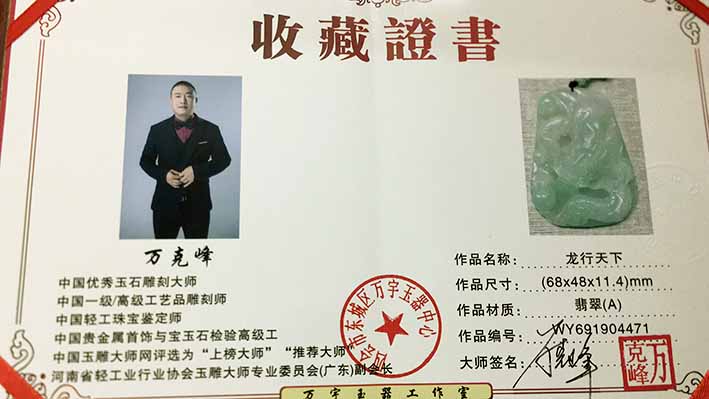 收藏證書
万克峰
中国优秀玉石雕刻大师
中国一级/高级工艺品雕刻师
中国轻工珠宝鉴定师
中国贵金属首饰与宝玉石检验高级工
中国玉雕大师网评选为“上榜大师”“推荐大师”
河南省轻工业行业协会玉雕大师专业委员会(广东)副会长
会市东城区万宇玉器中心
作品名称: 龙行天下
作品尺寸: (68x48x11.4)mm
作品材质: 翡翠(A)
作品编号: WY691904471
大师签名:
万克峰
万宇玉器工作室